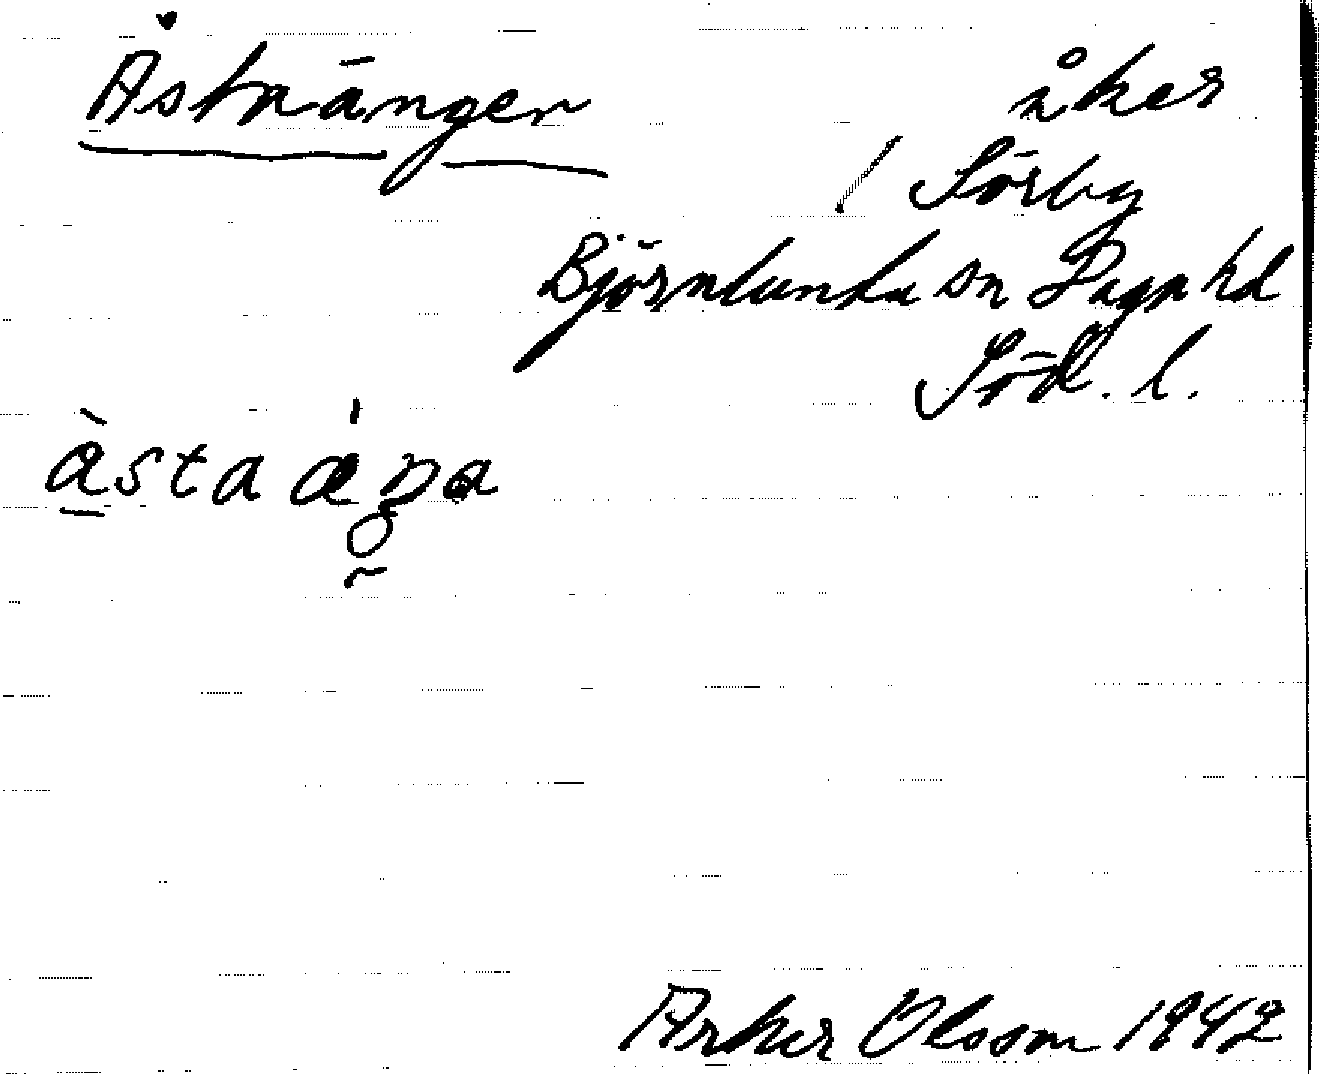 Åstaänger
åker
/ Sörby
Björnlunda sn Daga hd
Söd. l.
àsta áŋa
Asker Olsson 1942